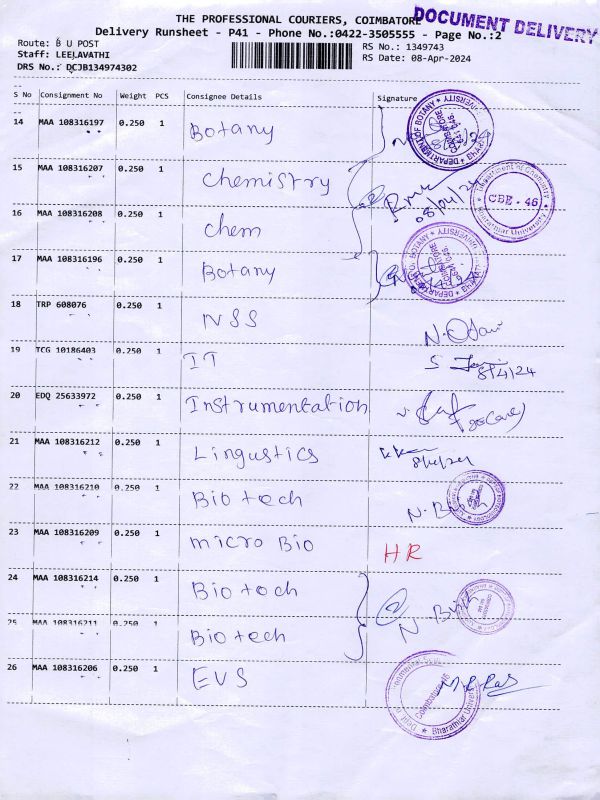 THE PROFESSIONAL COURIERS, COIMBATORE
DOCUMENT DELIVERY
Delivery Runsheet - P41 - Phone No.:0422-3505555 - Page No.:2
Route: B U POST
RS No.: 1349743
Staff: LEELAVATHI
RS Date: 08-Apr-2024
DRS No.: DCJB134974302
S No Consignment No Weight PCS Consignee Details Signature
14 MAA 108316197 0.250 1 Botany
15 MAA 108316207 0.250 1 Chemistry
08/04/24
CBE - 46
16 MAA 108316208 0.250 1 Chem
17 MAA 108316196 0.250 1 Botany
18 TRP 608076 0.250 1 NSS
19 TCG 10186403 0.250 1 IT
8/4/24
20 EDQ 25633972 0.250 1 Instrumentation
21 MAA 108316212 0.250 1 Lingustics
8/4/24
22 MAA 108316210 0.250 1 Bio tech
23 MAA 108316209 0.250 1 micro Bio HR
24 MAA 108316214 0.250 1 Bio tech
25 MAA 108316211 0.250 1 Bio tech
26 MAA 108316206 0.250 1 EVS